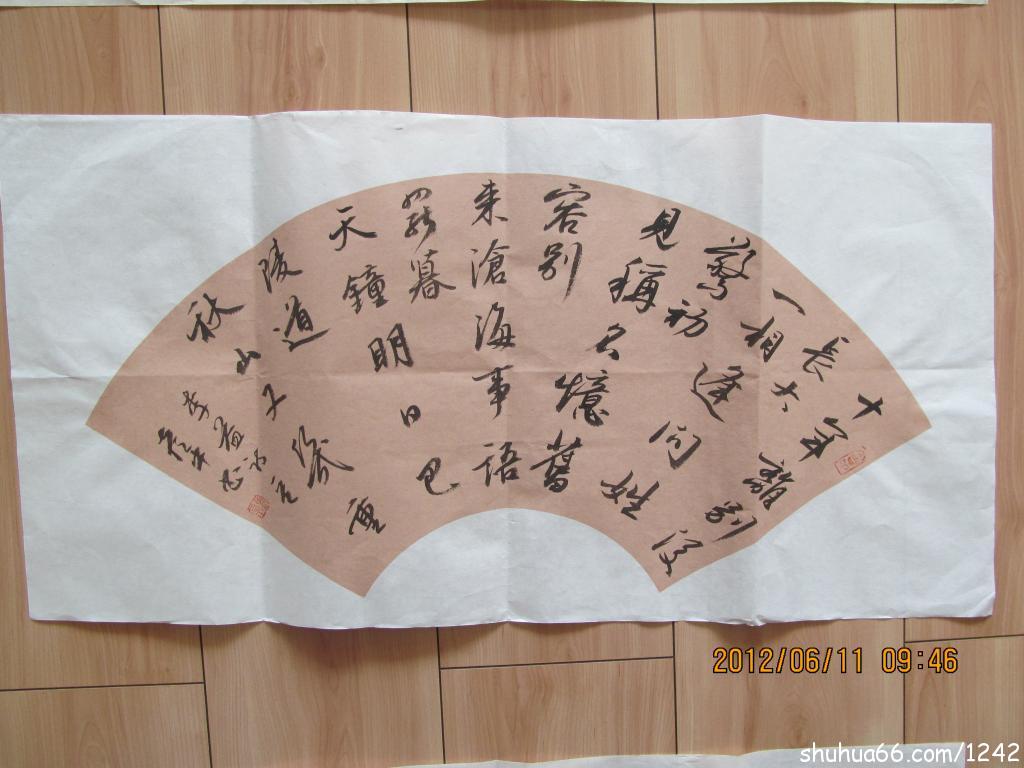 十年離別後
長大
一相逢問姓
驚初
見稱名憶舊
容別
來滄海事語
罷暮
天鐘明日巴
陵道
秋山又幾重
李益
2012/06/11 09:46
shuhua66.com/1242